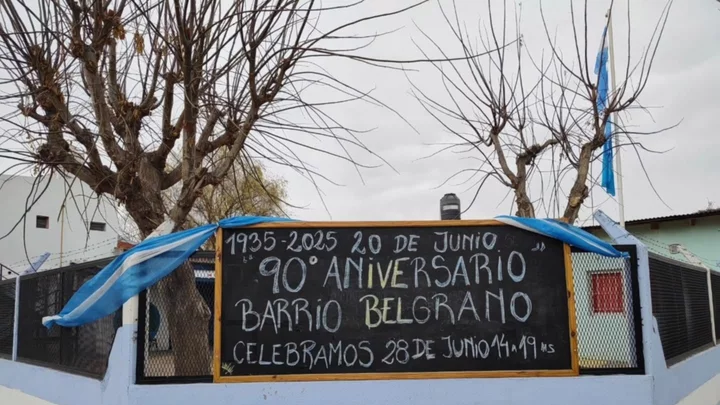 1935-2025 20 DE JUNIO
"90° ANiVERSARIO"
BARRIO BELGRANO
CELEBRAMOS 28 DE JUNIO 14 A 19 HS